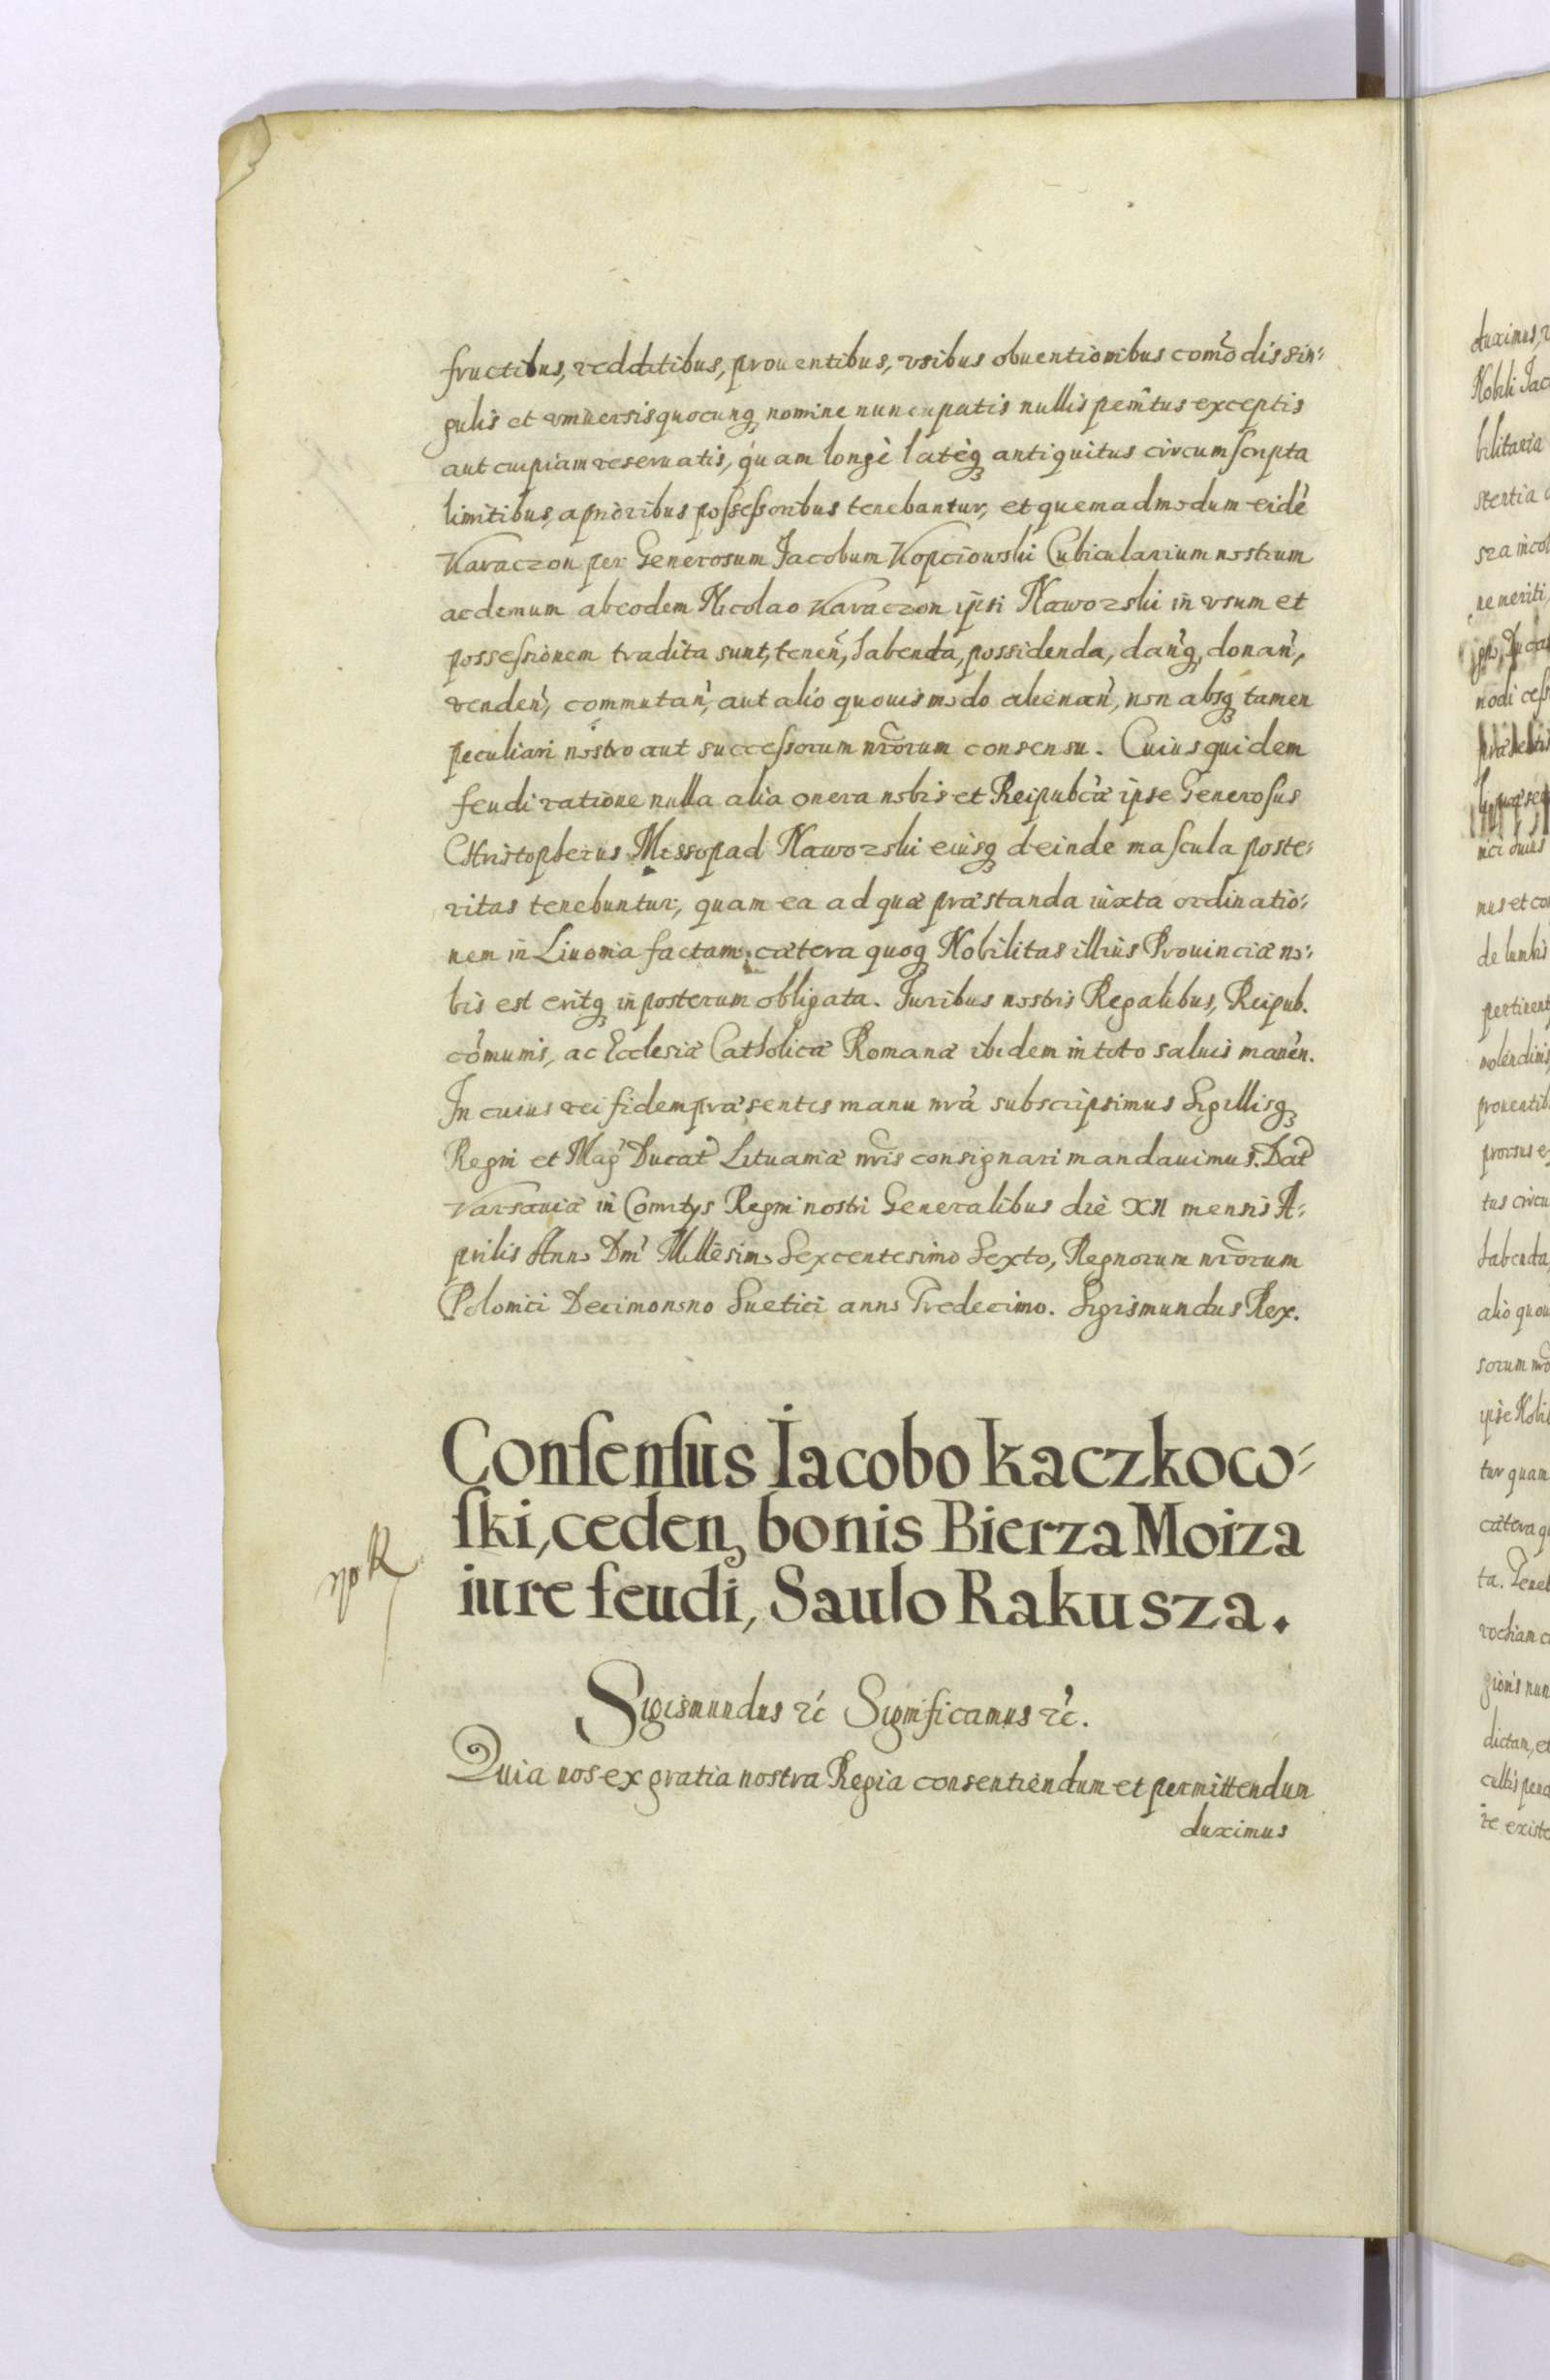 fructibus, redditibus, prouentibus, vsibus obuentionibus com̃odis sin:
gulis et vniuersis quocunq̨ nomine nuncupatis nullis penitus exceptis
aut cuipiam reseruatis, quam longè lateq̨ antiquitus circumſcripta
limitibus, a prioribus poſseſsoribus tenebantur, et quemadmodum eidē
Karaczon per Generosum Jacobum Kopciowski Cubicularium nostrum
ac demum ab eodem Nicolao Karaczon ipsi Naworski in vsum et
posseſsionem tradita sunt, teneñ, habenda, possidenda, danq̨, donañ,
vendeñ, commutañ, aut alio quouis modo alienañ, non absq̨ tamen
peculiari nostro aut succeſsorum nr̃orum consensu. Cuius quidem
feudi ratione nulla alia onera nobis et Reipublc̃æ ipse Generoſus
Christopherus Messopad Naworski eiusq̨ deinde maſcula poste:
ritas tenebuntur, quam ea ad quæ præstanda iuxta ordinatio:
nem in Liuonia factam, cætera quoq̨ Nobilitas illius Prouinciæ no:
bis est eritq̨ in posterum obligata. Juribus nostris Regalibus, Reipub.
cōmunis, ac Ecclesiæ Catholicæ Romanæ ibidem in toto saluis maneñ.
In cuius rei fidem præsentes manu nr̃a subscripsimus Sigillisq̨
Regni et Mag̃ Ducat̃ Lituaniæ nr̃is consignari mandauimus. Dat̃
Varsauiæ in Comitys Regni nostri Generalibus die XII mensis A:
prilis Anno Dnĩ Millesimo Sexcentesimo Sexto, Regnorum nr̃orum
Polonici Decimonono Suetici anno Tredecimo. Sigismundus Rex.
Conſenſus Iacobo Kaczkow:
ſki, ceden, bonis Bierza Moiza
iure feudi, Saulo Rakusza.
Sigismundus ꝛc̃ Significamus ꝛc̃.
Quia nos ex gratia nostra Regia consentiendum et permittendum
duximus